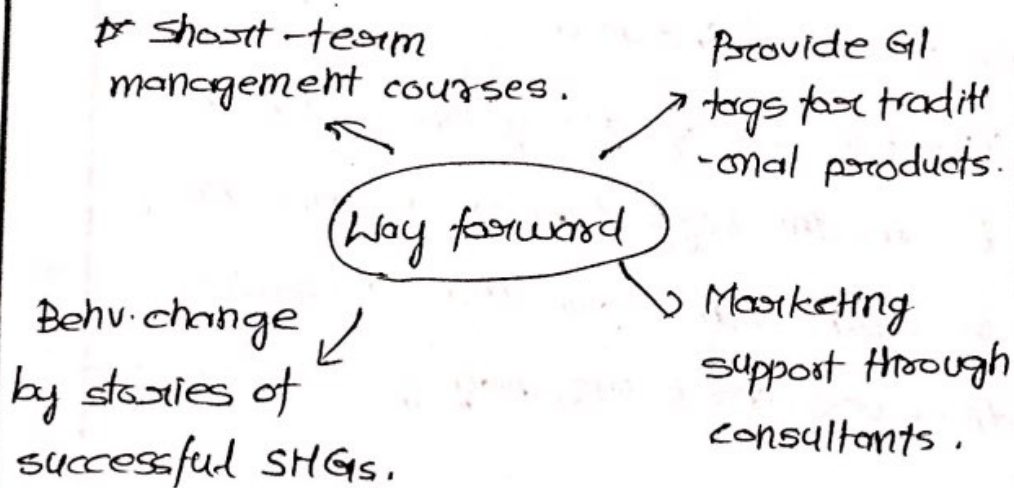 Short-term
management courses.
Provide GI
tags for traditi
-onal products.
Way forward
Behv. change
by stories of
successful SHGs.
Marketing
support through
consultants.